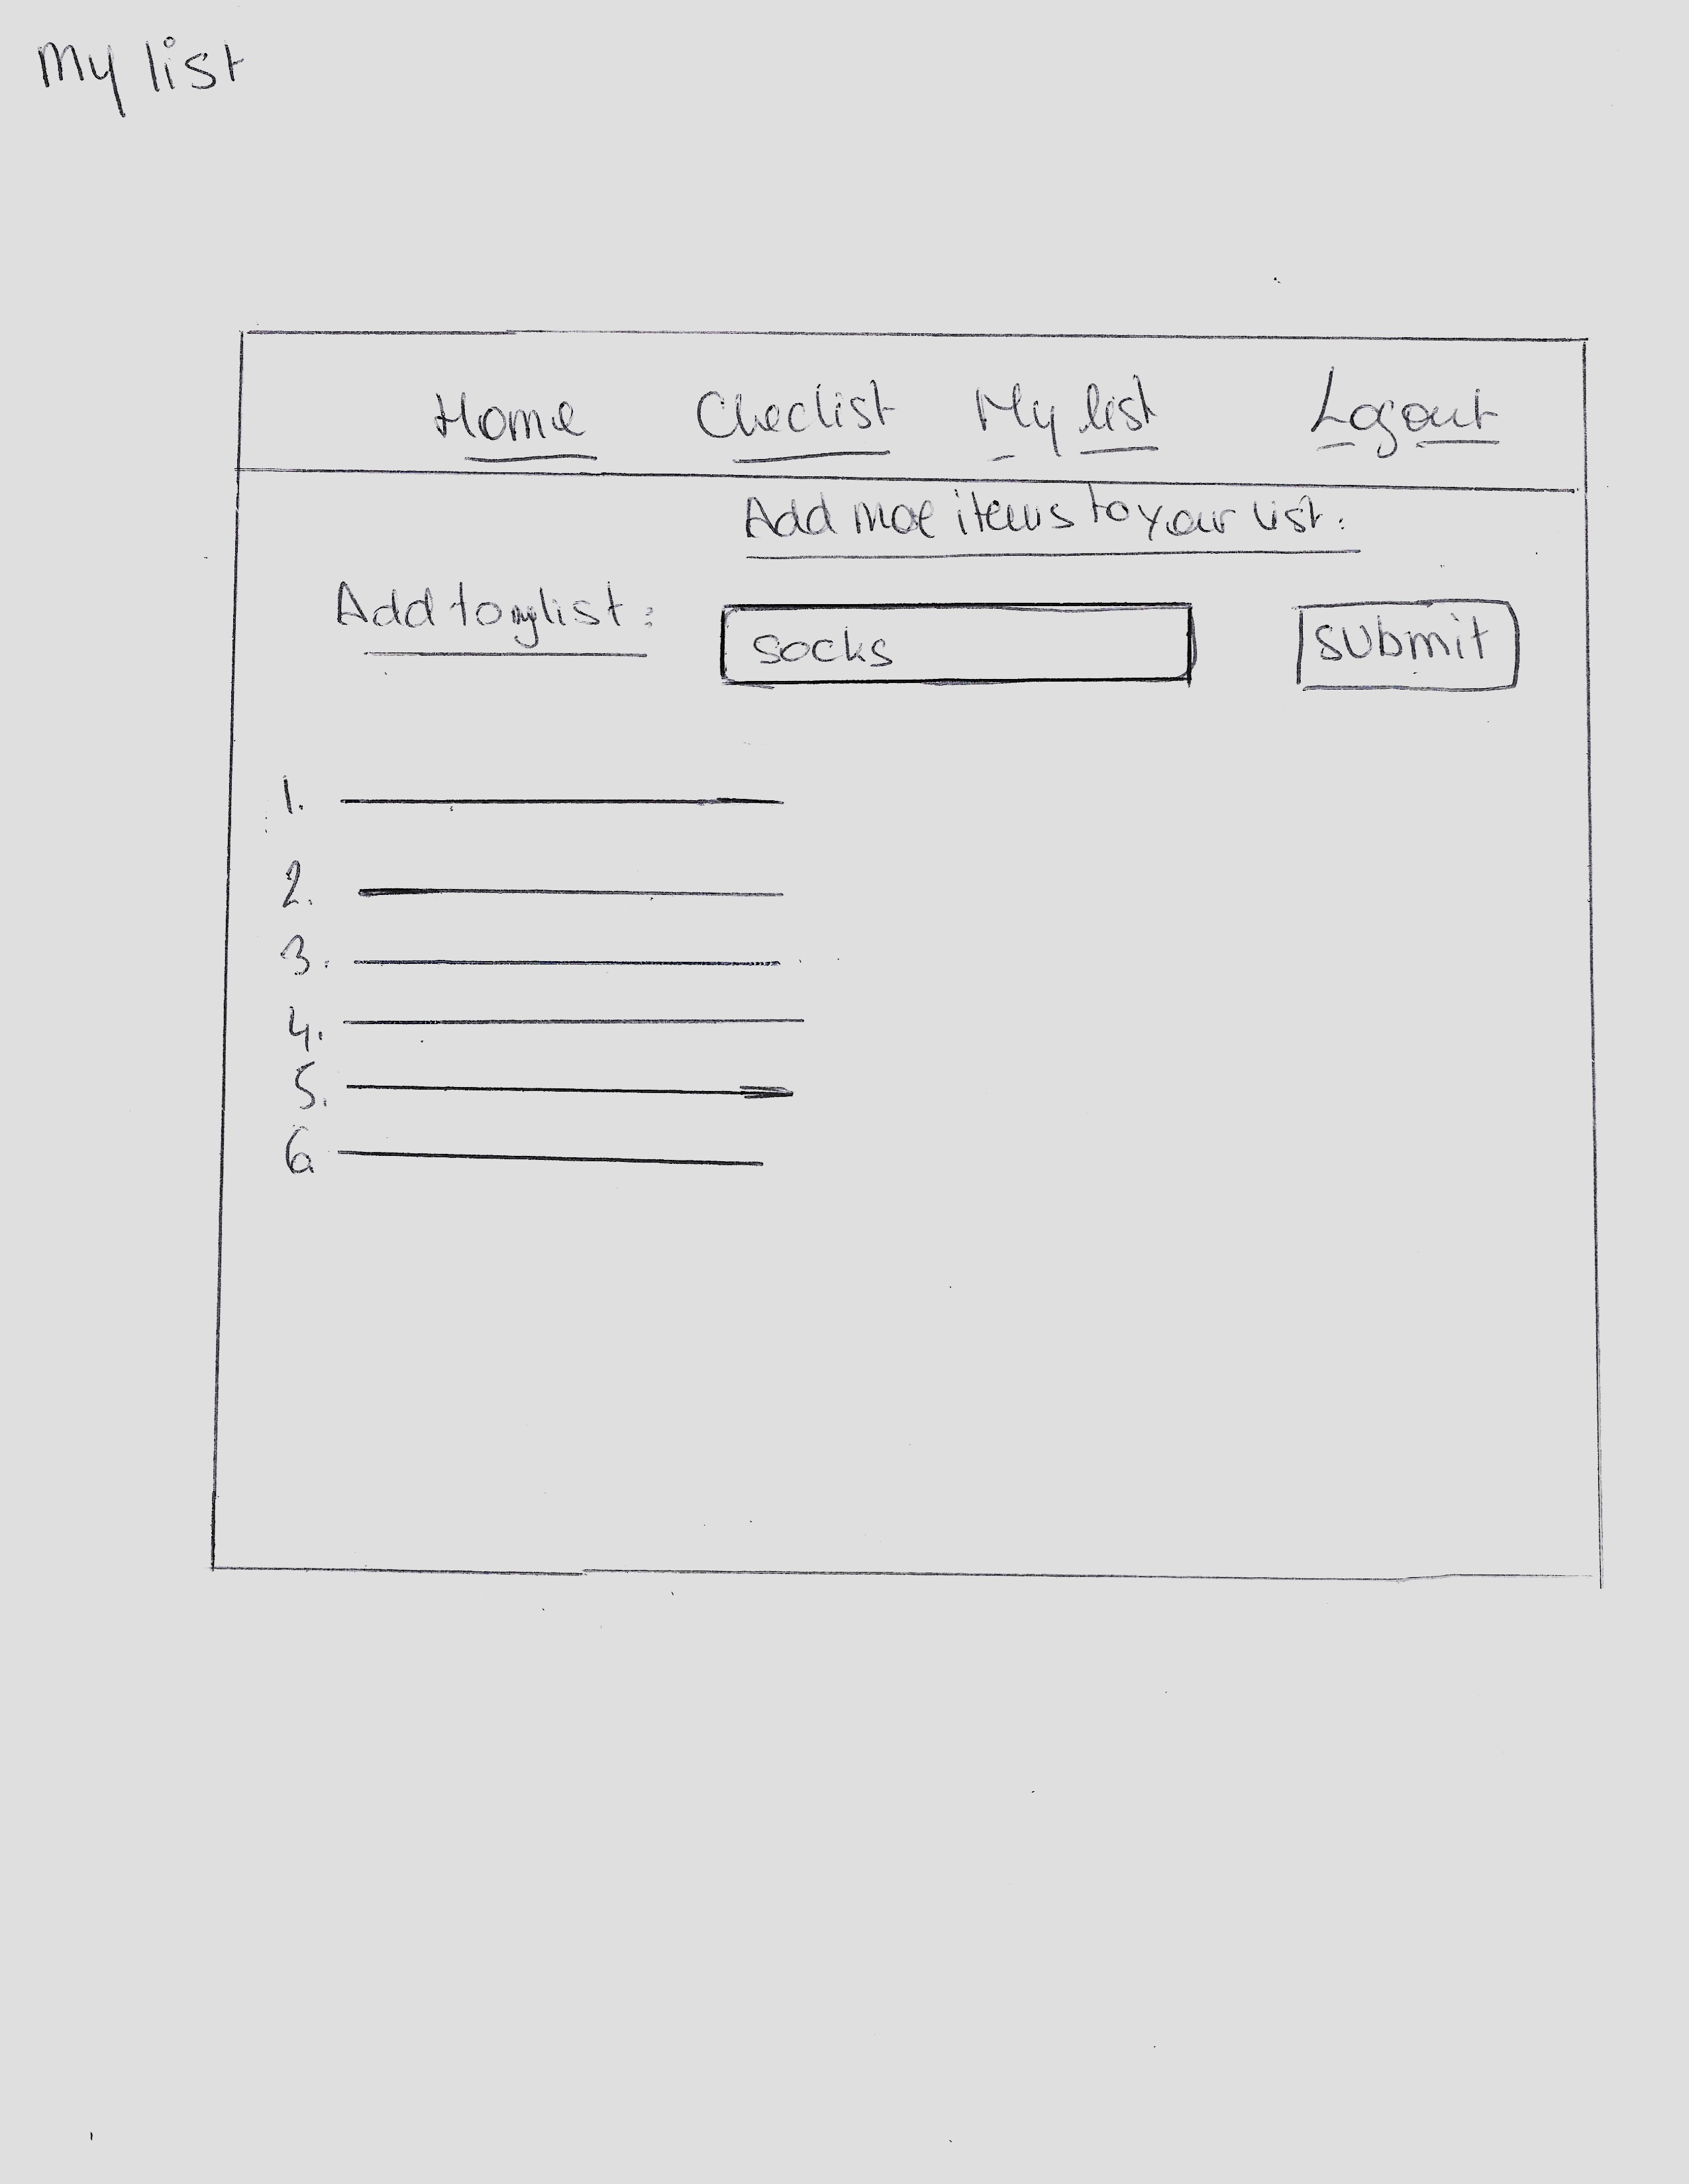 My list
Home Checlist My list Logout
Add moe items to your list:
Add to my list:
socks
submit
1.
2.
3.
4.
5.
6